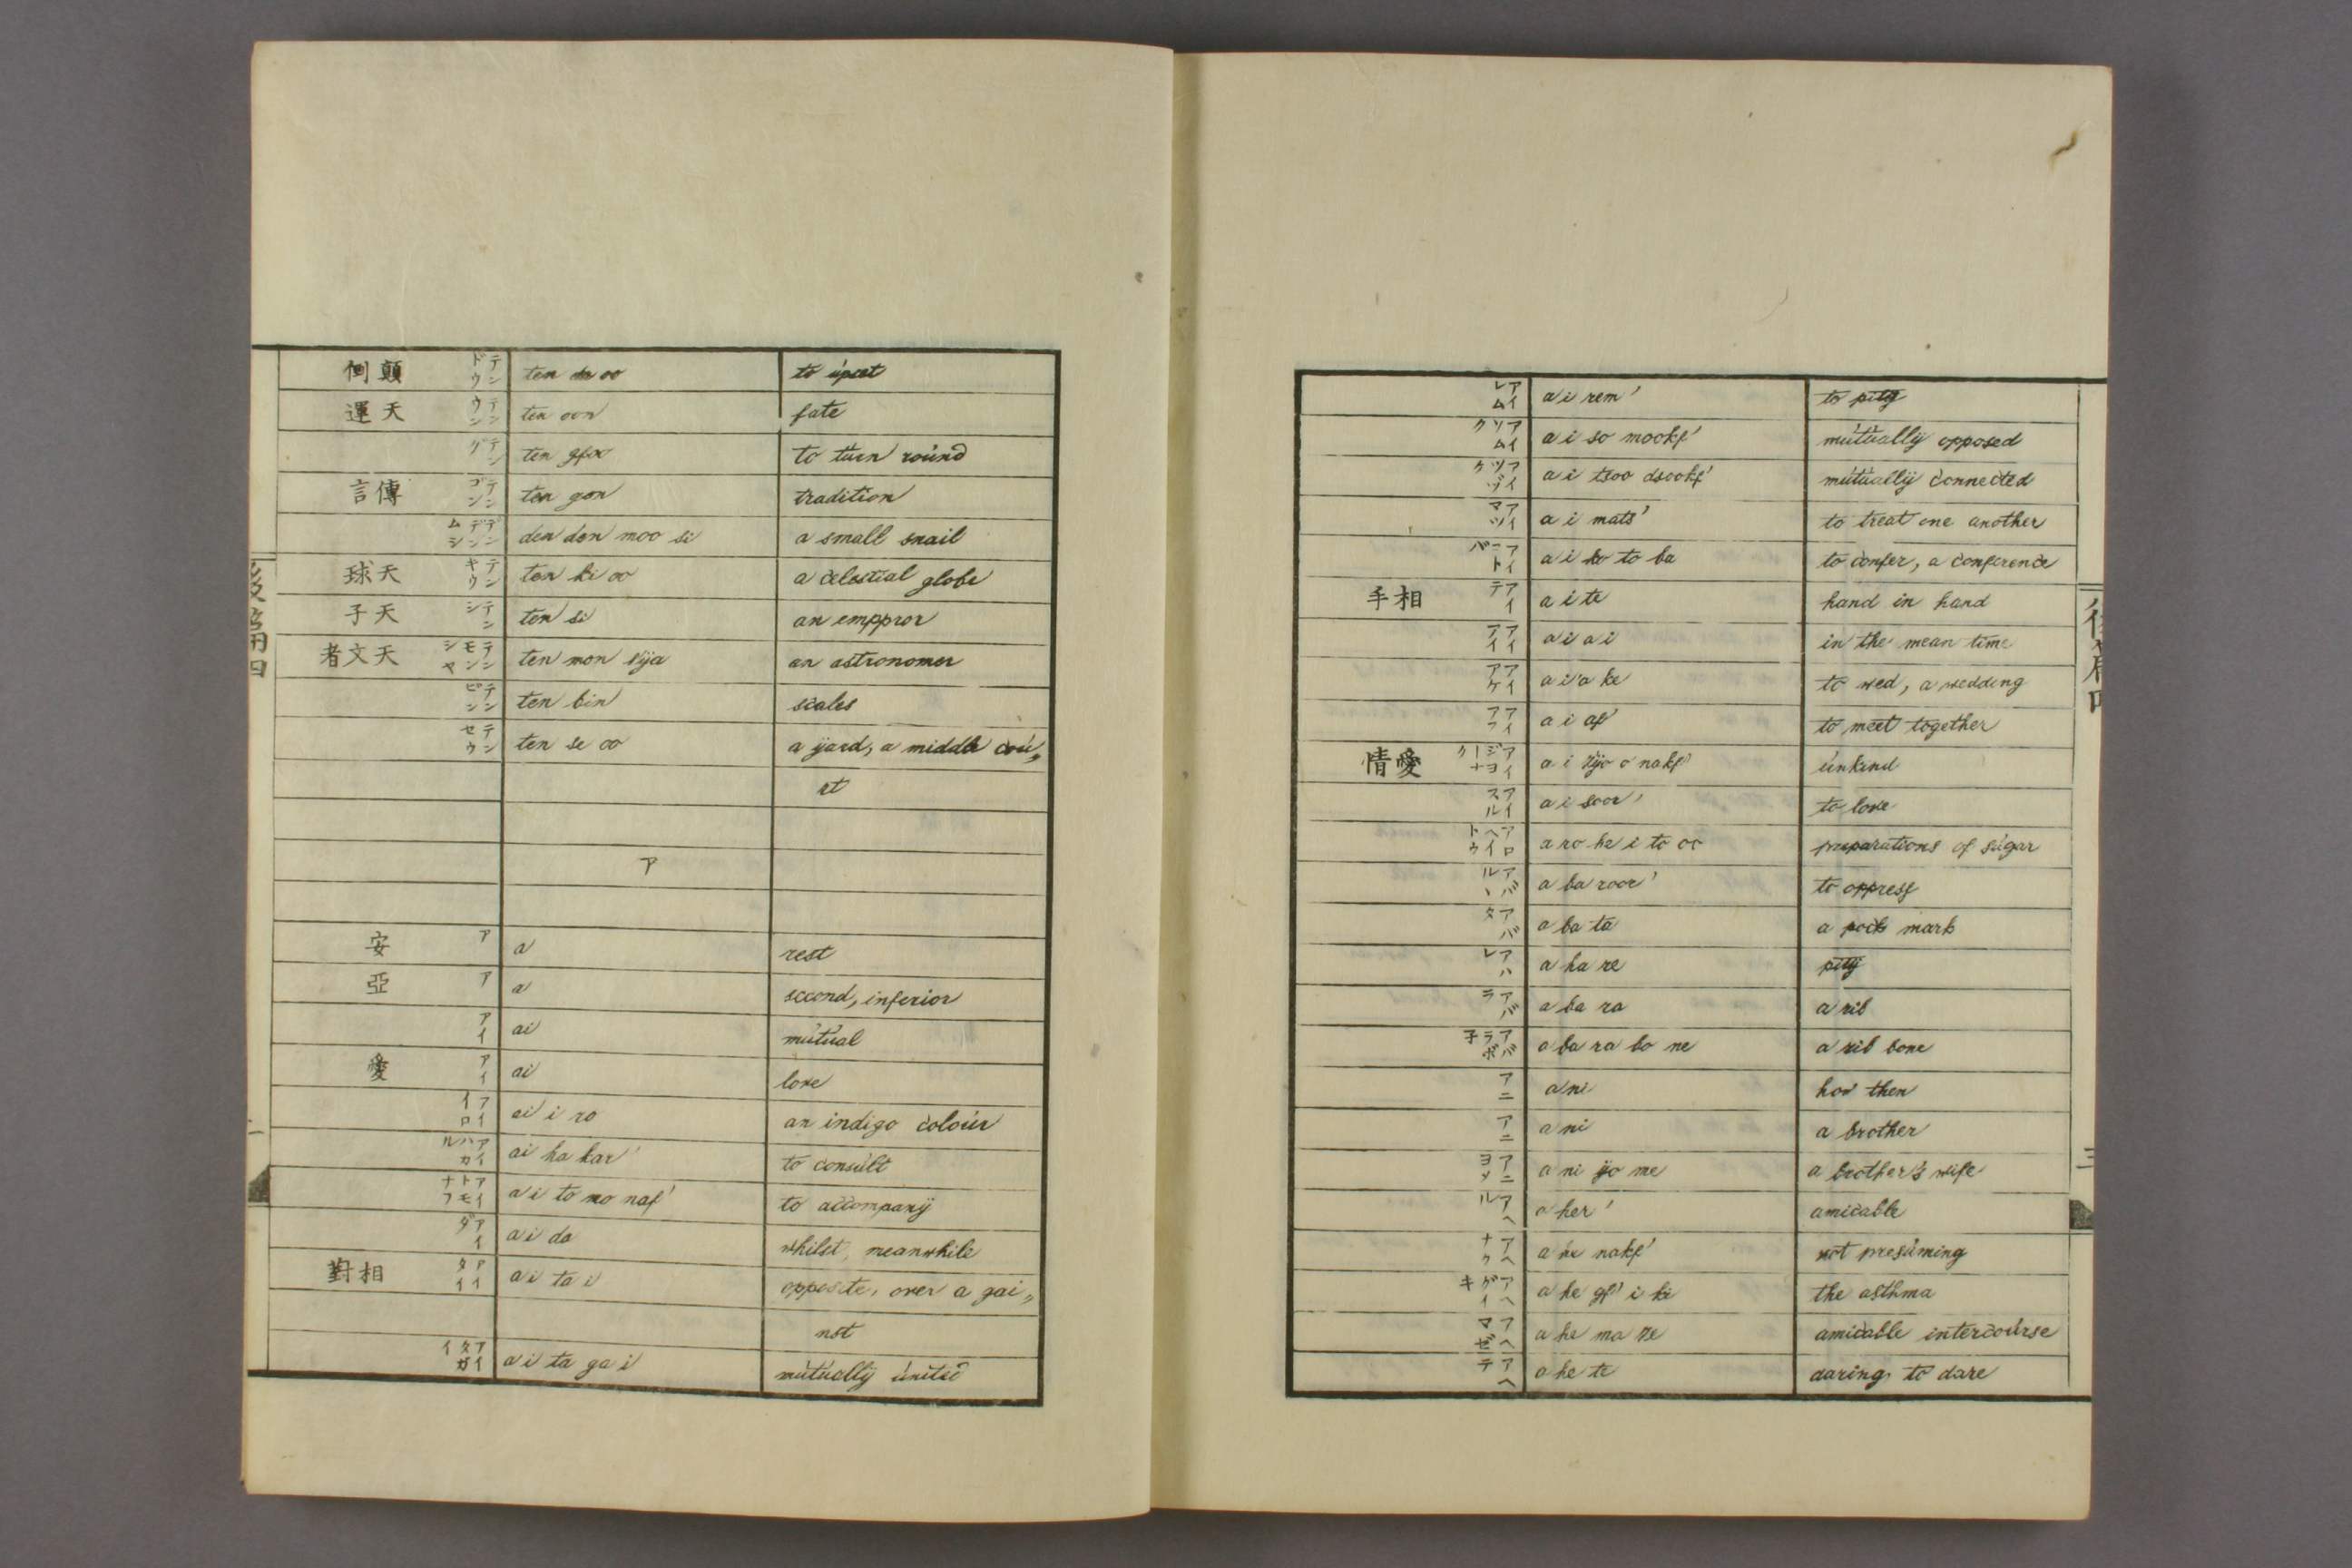 倒顛 テンドウ ten do oo to upset
運天 テンウン ten oon fate
テング ten gfoo to turn round
言傳 テンゴン ten gon tradition
デンデンムシ den den moo si a small snail
球天 テンキウ ten ki oo a celestial globe
子天 テンシ ten si an emppror
者文天 テンモンシヤ ten mon sija an astronomer
テンビン ten bin scales
テンセウ ten se oo a yard, a middle cou„
rt
ア
安 ア a rest
亞 ア a second, inferior
アイ ai mutual
愛 アイ ai love
アイイロ ai i ro an indigo colour
アイハカル ai ha kar' to consult
アイトモナフ a i to mo naf' to accompany
アイダ a i da whilst, meanwhile
對相 アイタイ a i ta i opposite, over a gai„
nst
アイタガイ a i ta ga i mutually united
アイレム a i rem' to pity
アイソムク a i so mookf' mutually opposed
アイツヅク a i tsoo dsookf' mutually connected
アイマツ a i mats' to treat one another
アイコトバ a i ko to ba to confer, a conference
手相 アイテ a i te hand in hand
アイアイ a i a i in the mean time
アイアケ a i a ke to wed, a wedding
アイアフ a i af' to meet together
情愛 アイジヨーナク a i zijo o nakf' unkind
アイスル a i soor' to love
アロヘイトウ a ro he i to oo preparations of sugar
アバヽル a ba roor' to oppress
アバタ a ba ta a pock mark
アハレ a ha re pity
アバラ a ba ra a rib
アバラボ子 a ba ra bo ne a rib bone
アニ a ni how then
アニ a ni a brother
アニヨメ a ni yo me a brother's wife
アヘル a her' amicable
アヘナク a he nakf' not presuming
アヘゲイキ a he gf' i ki the asthma
アヘマゼ a he ma ze amicable intercourse
アヘテ a he te daring, to dare